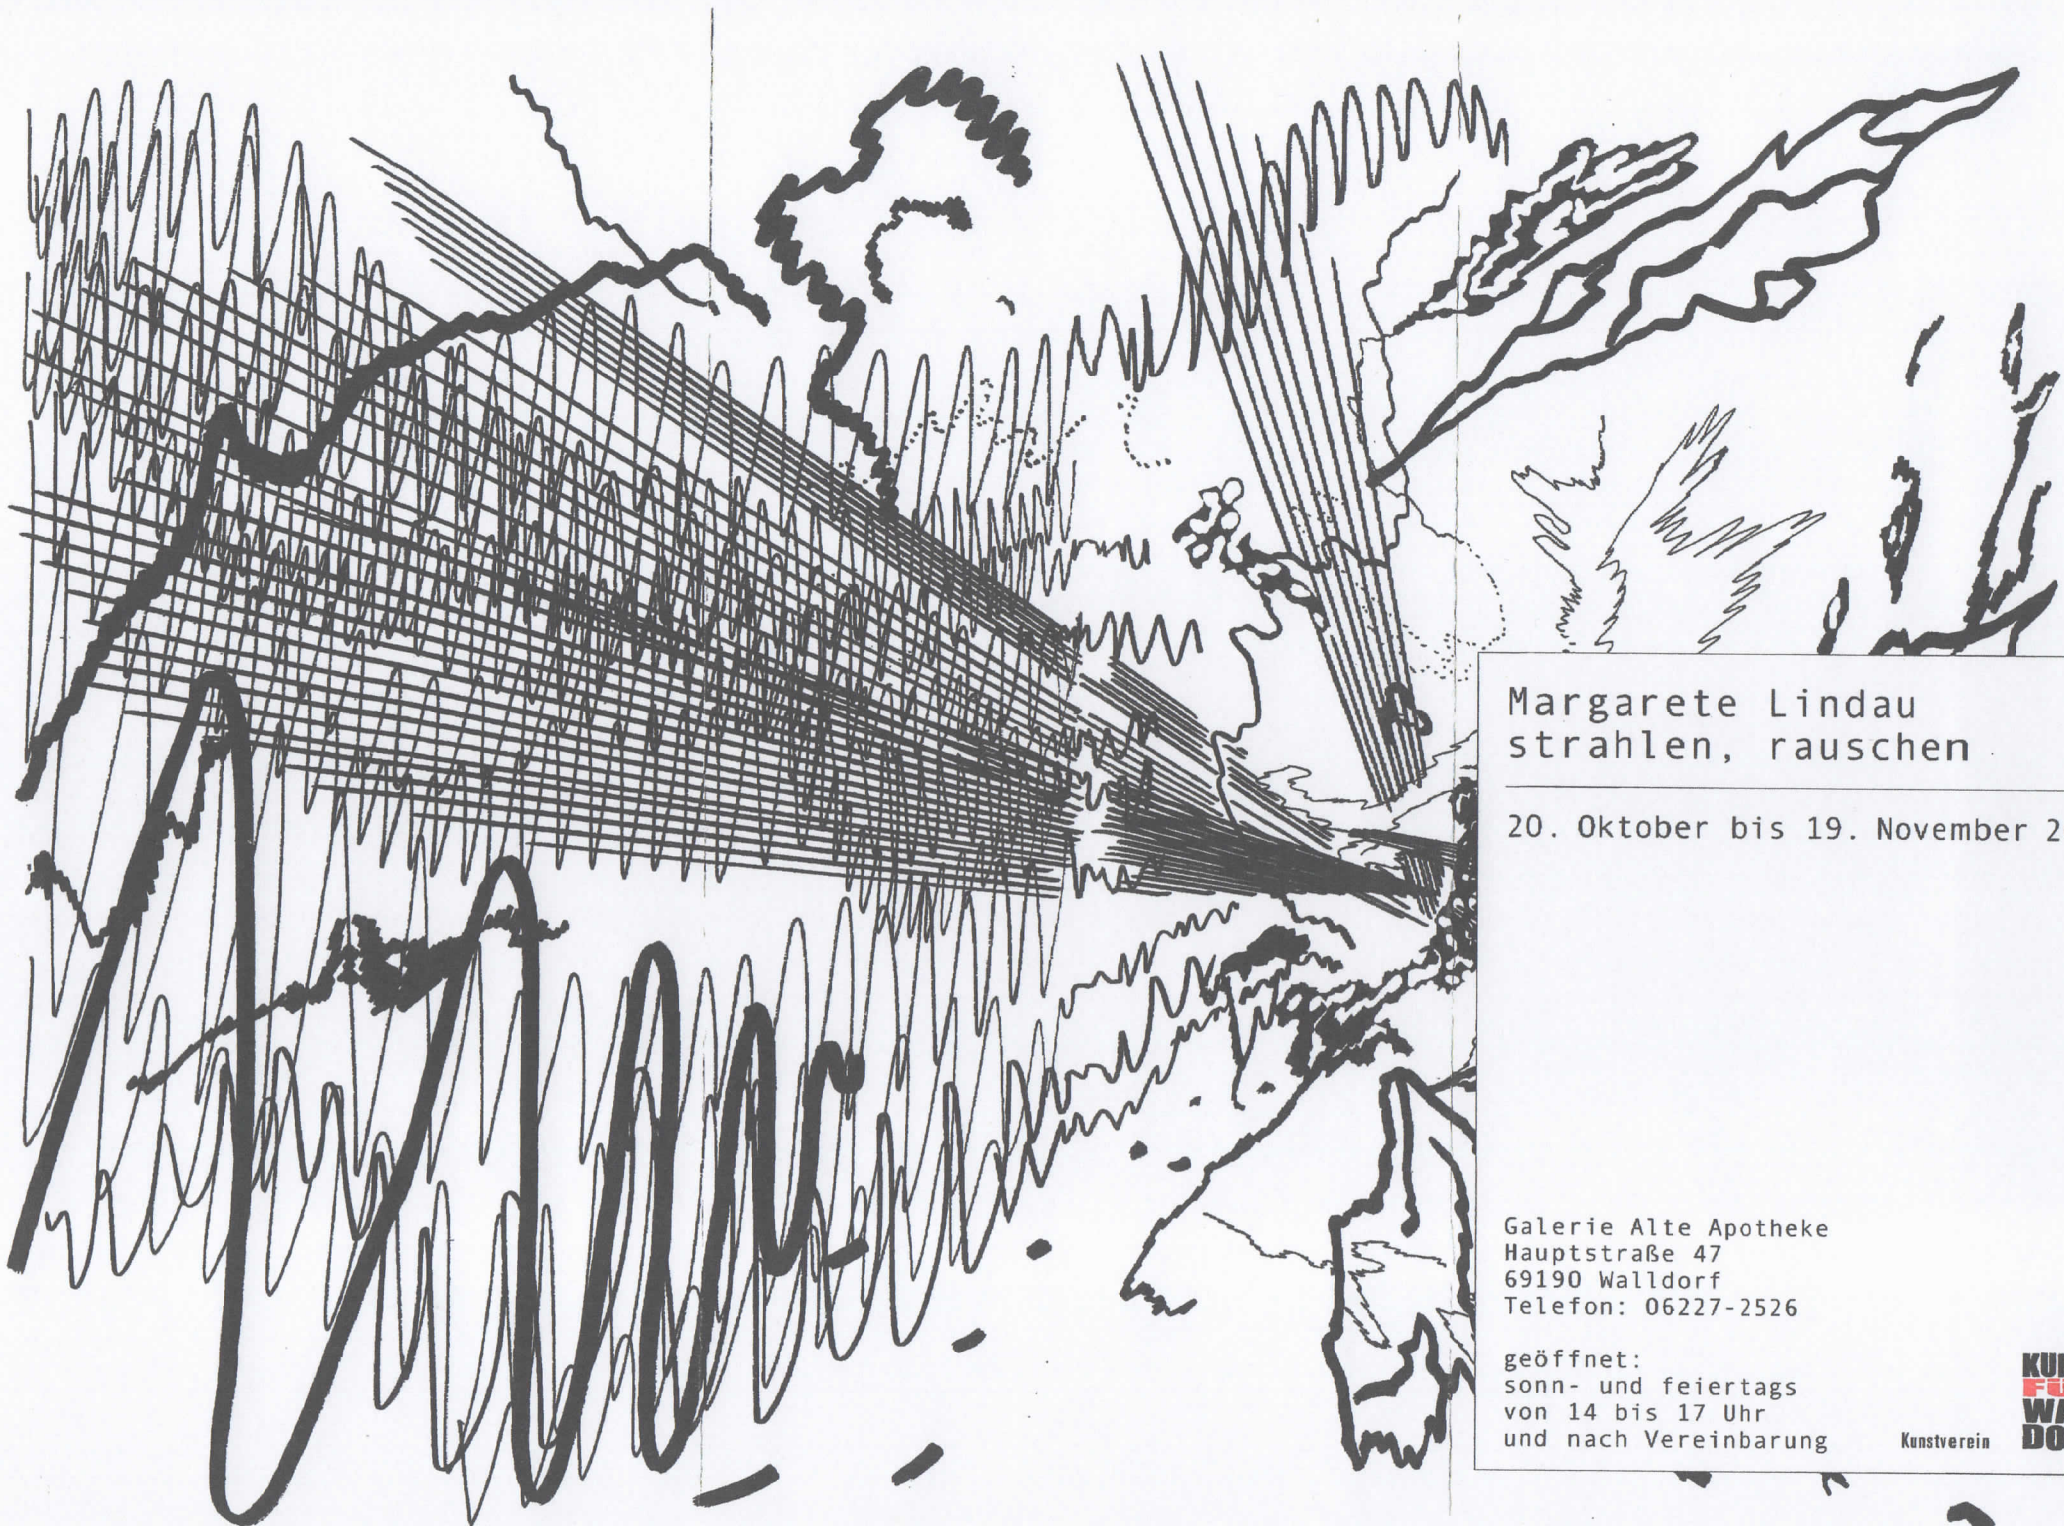 Margarete Lindau
strahlen, rauschen
20. Oktober bis 19. November 2
Galerie Alte Apotheke
Hauptstraße 47
69190 Walldorf
Telefon: 06227-2526
geöffnet:
sonn- und feiertags
von 14 bis 17 Uhr
und nach Vereinbarung
Kunstverein